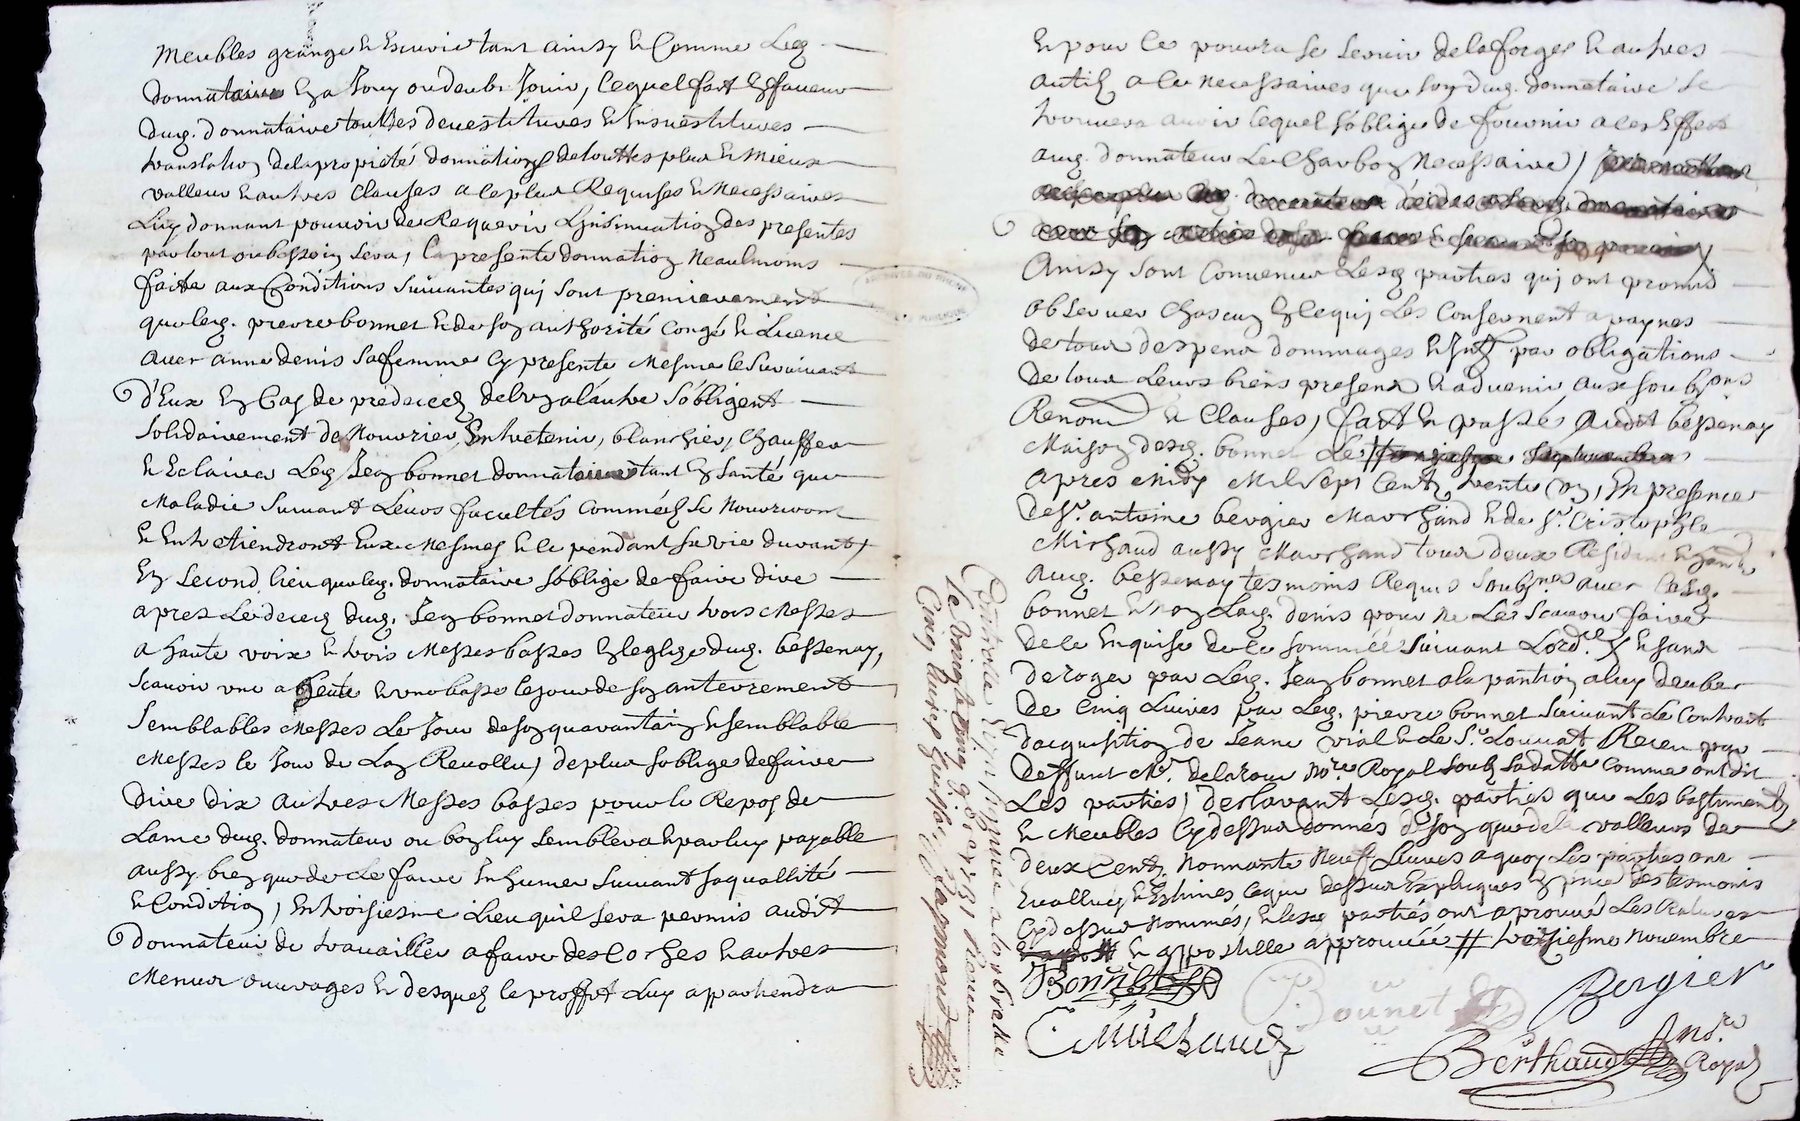 Meubles grange & Escurie tant ainsy & Comme Led.
donnataire En a Jouy ou deub Jouir, lequel fait En faveur
dud. donnataire touttes devestitures & Investitures
translation de la propieté donnation de touttes plus & Mieux
valleur & autres Clauses a ce plus Requises & Necessaires
Luy donnant pouvoir de Requerir L'Insinuation des presentes
partout ou bessoin sera, la presente donnation Neaulmoins
faite aux Conditions Suivantes qui sont premierement
que led. pierre bonnet & de son authorité Congé & Licence
avec anne denis sa femme Cy presente Mesme le Survivant
d'Eux En Cas de predeceds de l'un a l'autre s'obligent
Solidairement de Nourrir, Entretenir, blanchir, Chauffer
& Eclairer Led. Jean bonnet donnateur tant En santé que
Maladie Suivant Leurs facultés Comme Ils se Nourriront
& Entretiendront Eux Mesmes & ce pendant sa vie durant,
En second lieu que led. donnataire s'oblige de faire dire
apres Le deceds dud. Jean bonnet donnateur trois Messes
a haute voix & trois Messes basses En leglize dud. bessenay,
Scavoir une a haute & une basse le jour de son anterrement
Semblables Messes Le Jour de son quarantain & semblable
Messes le Jour de L'an Revollu, de plus s'oblige de faire
dire dix autres Messes basses pour le Repos de
Lame dud. donnateur ou bon luy semblera & par luy payable
aussy bien que de Le faire Inhumer Suivant sa quallité
& Condition, En troisiesme Lieu quil sera permis audit
donnateur de travailler a faire des & autres
Menus ouvrages & desquels le proffit Luy appartiendra
Controllé Et Insinué a Larbresle
le vingt cinq 9.bre 1731 Receu
Cinq livres
& pour Ce pourra se servir de la forge & autres
outils a Ce necessaires que son dud. donnataire se
trouvera avoir lequel s'oblige de fournir a ces Effets
aud. donnateur Le Charbon Necessaire,
Ainsy sont Convenues Lesd. parties qui ont promis
observer Chascun En ce qui Les Consernent a paynes
de tous despens dommages & Intz. par obligations
de tous Leurs biens presens & advenir aux soubz.ons
Renon.on & Clauses, fait & passé Audit bessenay
Maison desd. bonnet Le //
apres Midy Mil Sept Cents trente Un, En presence
de S.r antoine bergier Marchand & de S.r Cristophle
Michaud aussy Marchand tous deux Residants
aud. bessenay tesmoins Requis Soubz.nes avec lesd.
bonnet & non Lad. denis pour ne Le Scavoir faire
de ce Enquise de ce sommée Suivant Lord.ce & sans
deroger par Led. Jean bonnet a la pantion a luy deube
de Cinq Livres par Led. pierre bonnet Suivant Le Contrat
dacquisition de Jeane vial & Le S.r Louvat Receu par
deffunt M.r delaroue No.re Royal Soub Sa datte Comme ont dit
Les parties, declarant Lesd. parties que Les bastiments
& Meubles Cy dessus donnés de son que de la valleurs de
deux Cents Nonnante Neuf Livres a quoy Les parties ont
Evallué & Estimés Ce que dessus Expliqués En p.nce des tesmoins
Cy dessus Nommés, & lesd. parties ont aprouvé Les Ratures
& appostille approuvée // troisiesme Novembre
Bonnet
P. Bounet
Bergier
C Michaud
Berthaud No.re Royal